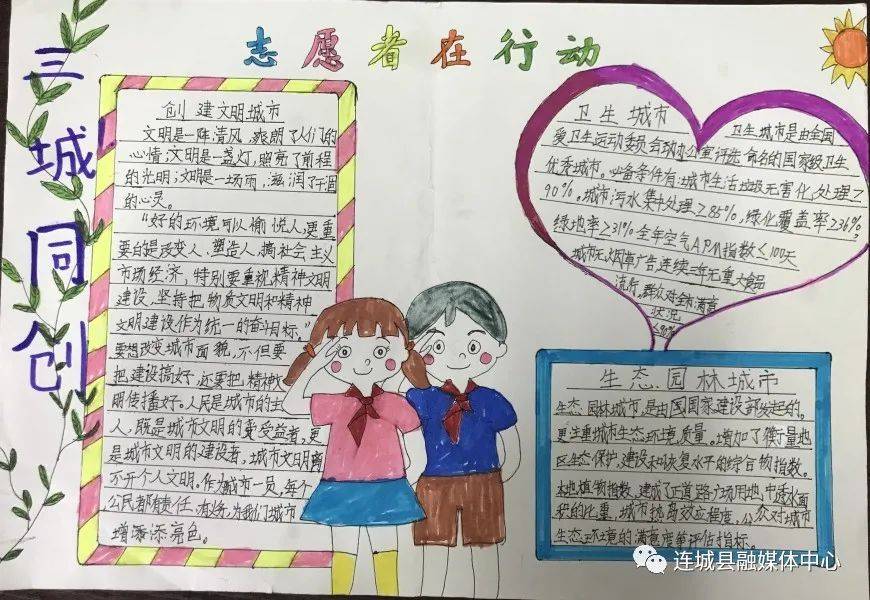 志愿者在行动
三城同创
创建文明城市
文明是一阵清风,爽朗了人们的
心情;文明是一盏灯,照亮了前程
的光明;文明是一场雨,滋润了干涸
的心灵。
“好的环境可以愉悦人,更重
要的是改变人、塑造人,搞社会主义
市场经济,特别要重视精神文明
建设,坚持把物质文明和精神
文明建设作为统一的奋斗目标,”
要想改变城市面貌,不但要
把建设搞好,还要把精神文
明传播好。人民是城市的主
人,既是城市文明的受益者,更
是城市文明的建设者,城市文明离
不开个人文明。作为城市一员,每个
公民都有责任、有义务,为我们城市
增添添亮色。
卫生城市
卫生城市是由全国
爱卫生运动委员会办公室评选命名的国家级卫生
优秀城市。必备条件有:城市生活垃圾无害化处理≥
90%。城市污水集中处理≥85%,绿化覆盖率≥36%,
绿地率≥31%全年空气APM指数≤100天
城市无烟草广告,连续三年无重大食品
流行,群众对全市满意
状况
≥90%
生态园林城市
生态园林城市,是由国国家建设部发起的。
更注重城市生态环境质量。增加了衡量地
区生态保护,建设和恢复水平的综合物指数。
本地植物指数,建成了正道路广场用地,中透水面
积的比重,城市热岛效应程度,公众对城市
生态环境的满意度等评估指标。
连城县融媒体中心